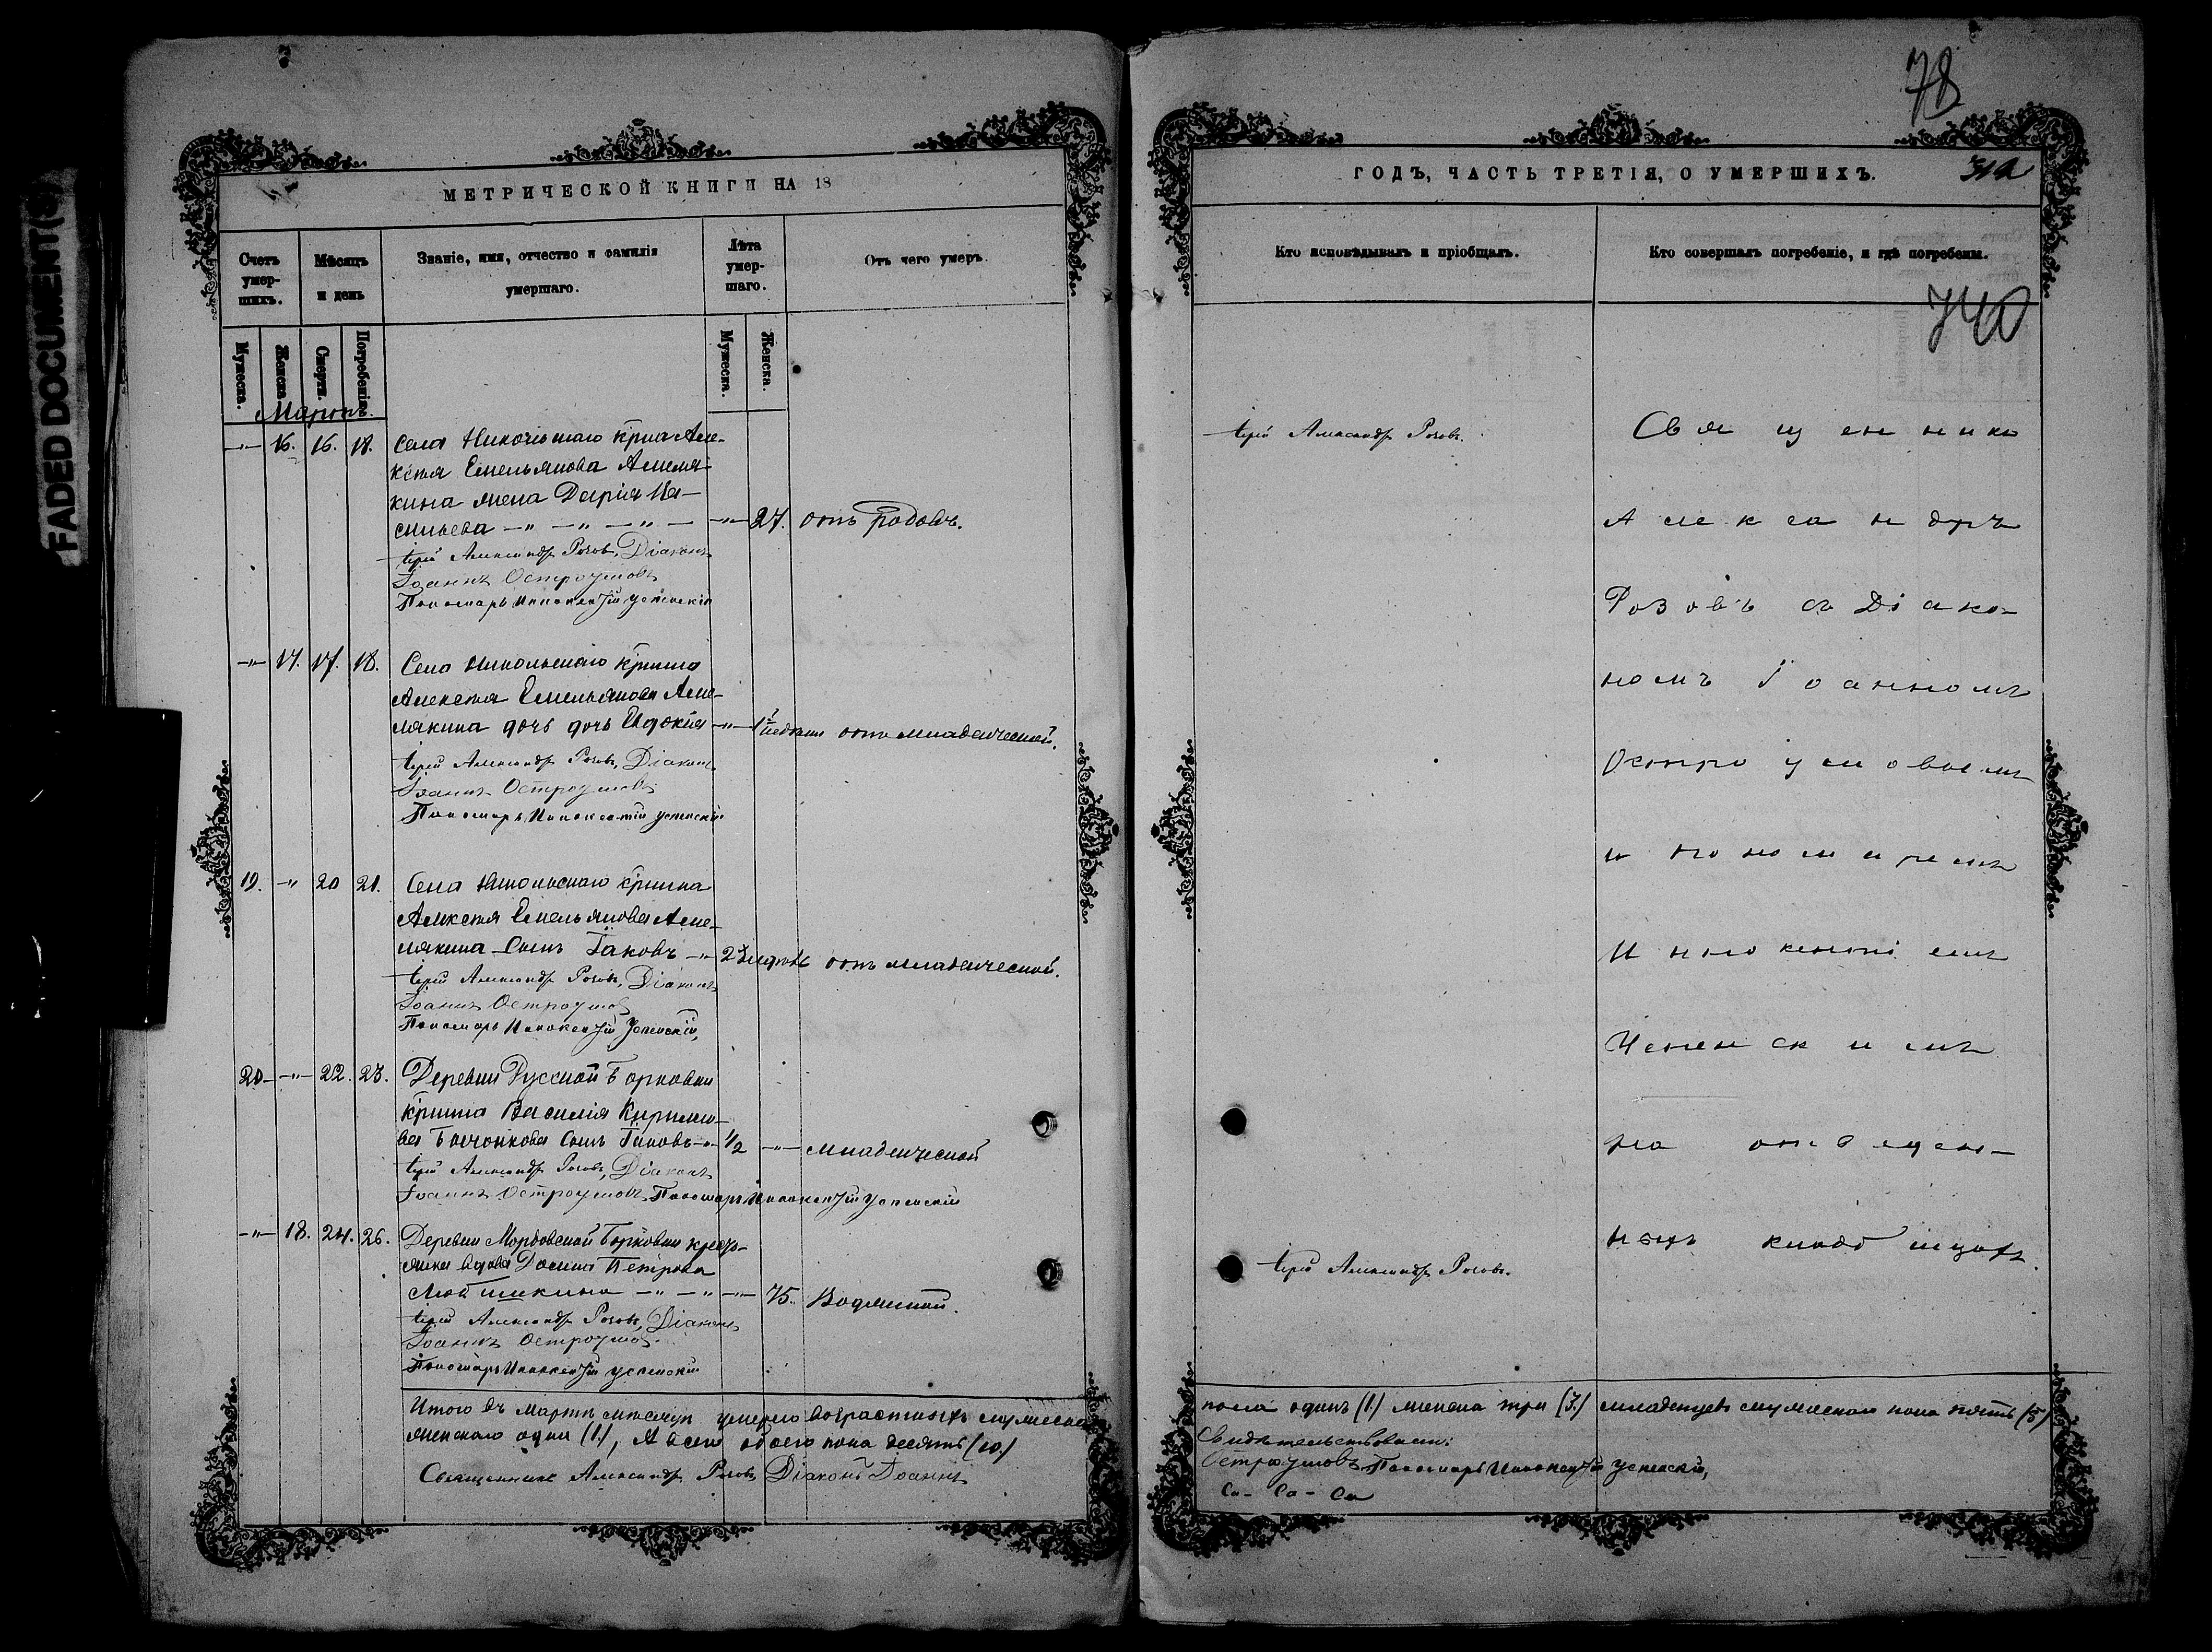 FADED DOCUMENT(S)
МЕТРИЧЕСКОЙ КНИГИ НА 18
Счетъ умершихъ.
Мѣсяцъ и день
Званіе, имя, отчество и фамилія умершаго.
Лѣта умершаго.
Отъ чего умеръ.
Мужеска.
Женска.
Смерти.
Погребенія.
Мужеска.
Женска.
Мартъ.
—„— 16. 16. 18. Села Никольскаго крна Але-
ксѣя Емельянова Асеме-
кина жена Дарія Ва-
сильева —„ —„ —„ — —„— 27. отъ родовъ.
Іерей Александръ Розовъ, Діаконъ
Іоаннъ Остроумовъ
Пономарь Инокентій Успенскій
—„— 17. 17. 18. Села Никольскаго крнина
Алексѣя Емельянова
дочь дочь Евдокія —„— недѣли отъ младенческой.
Іерей Александръ Розовъ, Діаконъ
Іоаннъ Остроумовъ
Пономарь Инокентій Успенскій
19. —„ 20 21. Села Никольскаго крнина
Алексѣя Емельянова
сынъ Іаковъ —„ отъ младенческой.
Іерей Александръ Розовъ, Діаконъ
Іоаннъ Остроумовъ
Пономарь Инокентій Успенскій,
20 —„— 22. 23. Деревни Русской Борковки
крнина Василія Кирилло-
ва сынъ Іаковъ —„ 1/2 —„— младенческой
Іерей Александръ Розовъ, Діаконъ
Іоаннъ Остроумовъ Пономарь Инокентій Успенскій
—„— 18. 24. 26. Деревни Мордовской Борковки крест-
янка вдова Петрова
—„ —„ —„— 75. Водяной.
Іерей Александръ Розовъ, Діаконъ
Іоаннъ Остроумовъ
Пономарь Инокентій Успенскій
Итого въ Мартѣ мѣсяцѣ умерло возрастныхъ мужеска
женскаго одна (1.), А всего обоего пола десять (10.)
Священникъ Александръ Розовъ Діаконъ Іоаннъ
78
ГОДЪ, ЧАСТЬ ТРЕТІЯ, О УМЕРШИХЪ.
Кто исповѣдывалъ и пріобщалъ.
Кто совершалъ погребеніе, и гдѣ погребены.
740
Іерей Александръ Розовъ.
Священникъ
Александръ
Розовъ съ Діако-
номъ Іоанномъ
Остроумовымъ
и пономаремъ
Инокентіемъ
Успенскимъ
на отведен-
ныхъ кладбищахъ.
Іерей Александръ Розовъ.
пола одинъ (1.) женска три (3.) младенцевъ мужескаго пола пять (5.)
Свидѣтельствовали:
Остроумовъ Пономарь Инокентій Успенскій,